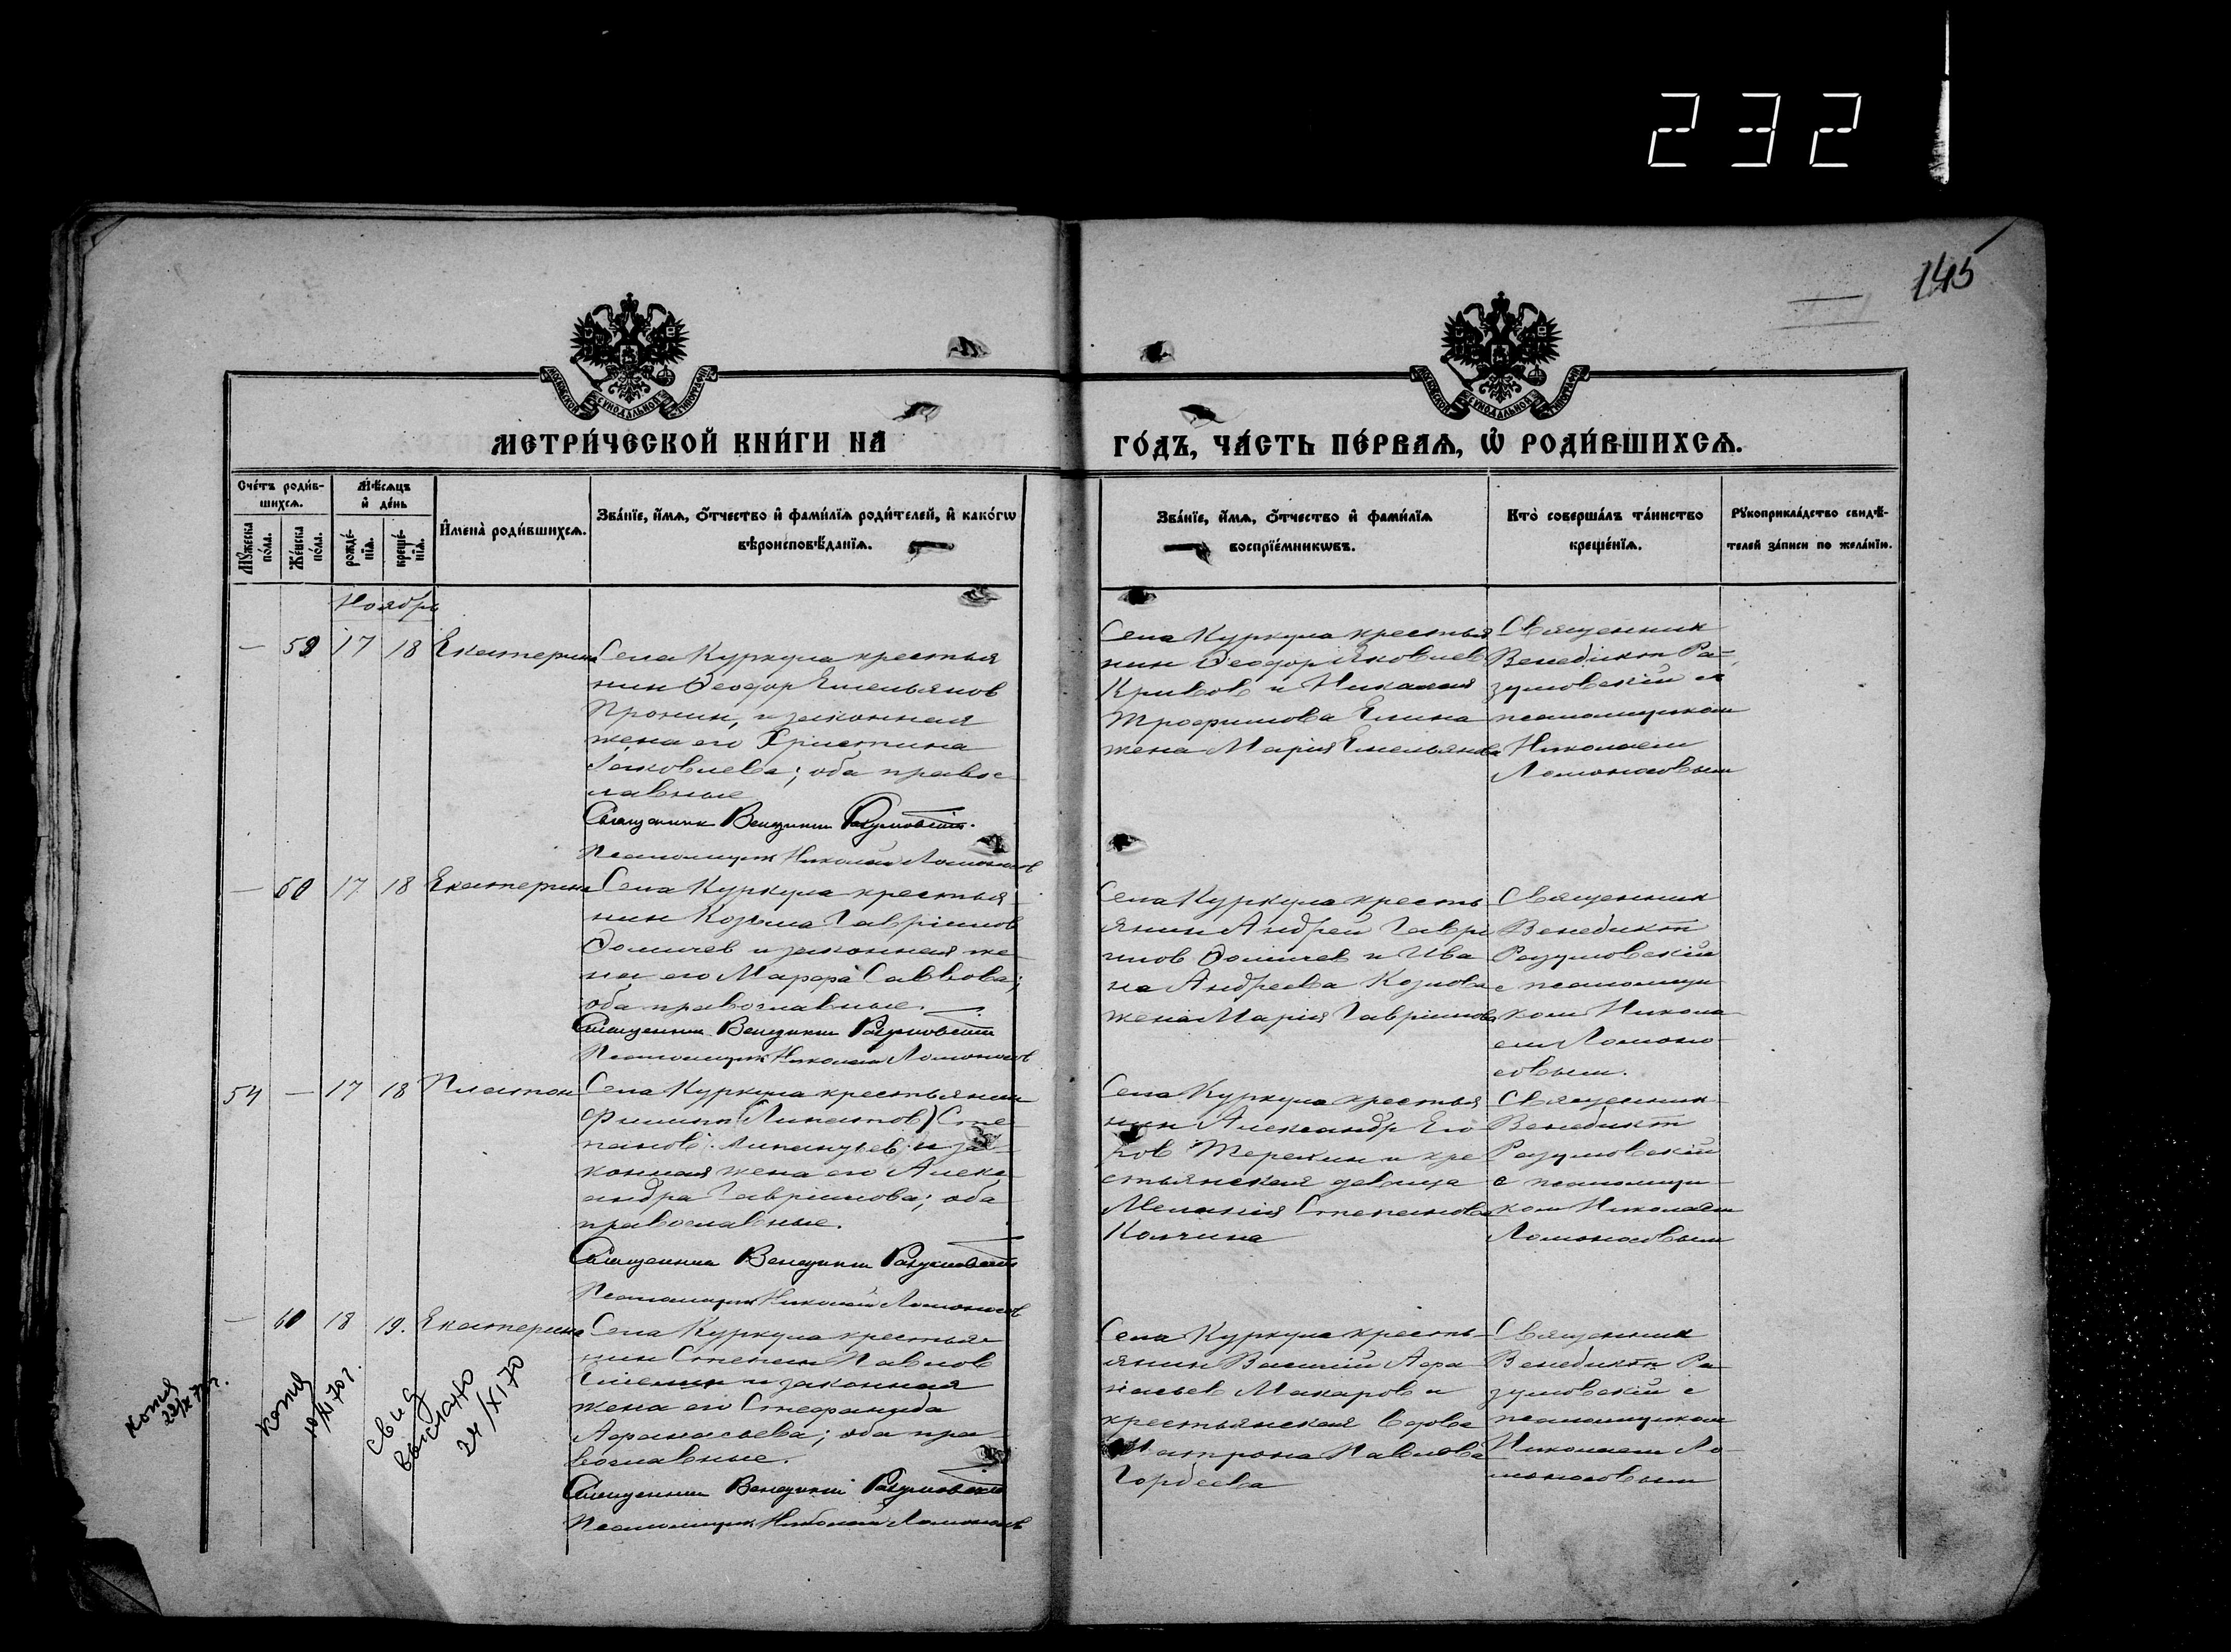 232
145
МОСКОВСКОЙ СѴНОДАЛЬНОЙ ТИПОГРАФІИ
МОСКОВСКОЙ СѴНОДАЛЬНОЙ ТИПОГРАФІИ
МЕТРИ́ЧЕСКОЙ КНИ́ГИ НА
ГО́ДЪ, ЧА́СТЬ ПЕ́РВАѦ, Ѡ҆ РОДИ́ВШИХСѦ.
Сче́тъ роди́в-
шихсѧ.
Мꙋ́жеска по́ла.
Же́нска по́ла.
Мѣ́сѧцъ
и҆ де́нь
рожде́-
нїѧ.
креще́-
нїѧ.
И҆мена̀ роди́вшихсѧ.
Зва́нїе, и҆́мѧ, ѻ҆́тчество и҆ фами́лїѧ роди́телей, и҆ како́гѡ
вѣроисповѣ́данїѧ.
Зва́нїе, и҆́мѧ, ѻ҆́тчество и҆ фами́лїѧ
воспрїе́мникѡвъ.
Кто̀ соверша́лъ та́инство
креще́нїѧ.
Рꙋкоприкла́дство свидѣ́-
телей за́писи по жела́нїю.
Ноября
— 59 17 18 Екатерина
Села Куркула крестья
нин Ѳеодор Емельянов
Пронин, и законная
жена его Христина
Іаковлева; оба правос
лавные
Священник Венедикт Разумовский.
Псаломщик Николай Ломоносов
Села Куркула крестья
нин Ѳеодор Яковлев
Кривов и Николая
Трофимова Емина
жена Мария Емельянова
Священник
Венедикт Ра-
зумовский с
псаломщиком
Николаем
Ломоносовым
— 60 17 18 Екатерина
Села Куркула крестья
нин Козьма Гавриилов
Ѳомичев и законная же
на его Марфа Саввова;
оба православные.
Священник Венедикт Разумовский
Псаломщик Николай Ломоносов
Села Куркула кресть
янин Андрей Гаври
илов Ѳомичев и Ива
на Андреева Козлова
жена Мария Гавриилова
Священник
Венедикт
Разумовский
с псаломщи
ком Никола
ем Ломоно-
совым.
54 — 17 18 Платон
Села Куркула крестьянин
Филипп (Липатов) Сте
панов Липатьев и за-
конная жена его Алекс
андра Гавриилова; оба
православные.
Священник Венедикт Разумовский
Псаломщик Николай Ломоносов
Села Куркула крестья
нин Александр Его
ров Терехин и кре
стьянская девица
Мелания Степанова
Колчина
Священник
Венедикт
Разумовский
с псаломщи-
ком Николаем
Ломоносовым
— 60 18 19. Екатерина
Села Куркула крестья-
нин Степан Павлов
Емелин и законная
жена его Стефанида
Афанасьева; оба пра
вославные.
Священник Венедикт Разумовский
Псаломщик Николай Ломоносов
Села Куркула кресть-
янин Василий Афа-
насьев Макаров и
крестьянская вдова
Матрона Павлова
Гордеева
Священник
Венедикт Ра-
зумовский с
псаломщиком
Николаем Ло-
моносовым
копия
копия
10/XI 70 г.
свид
выслано
24/XI 70